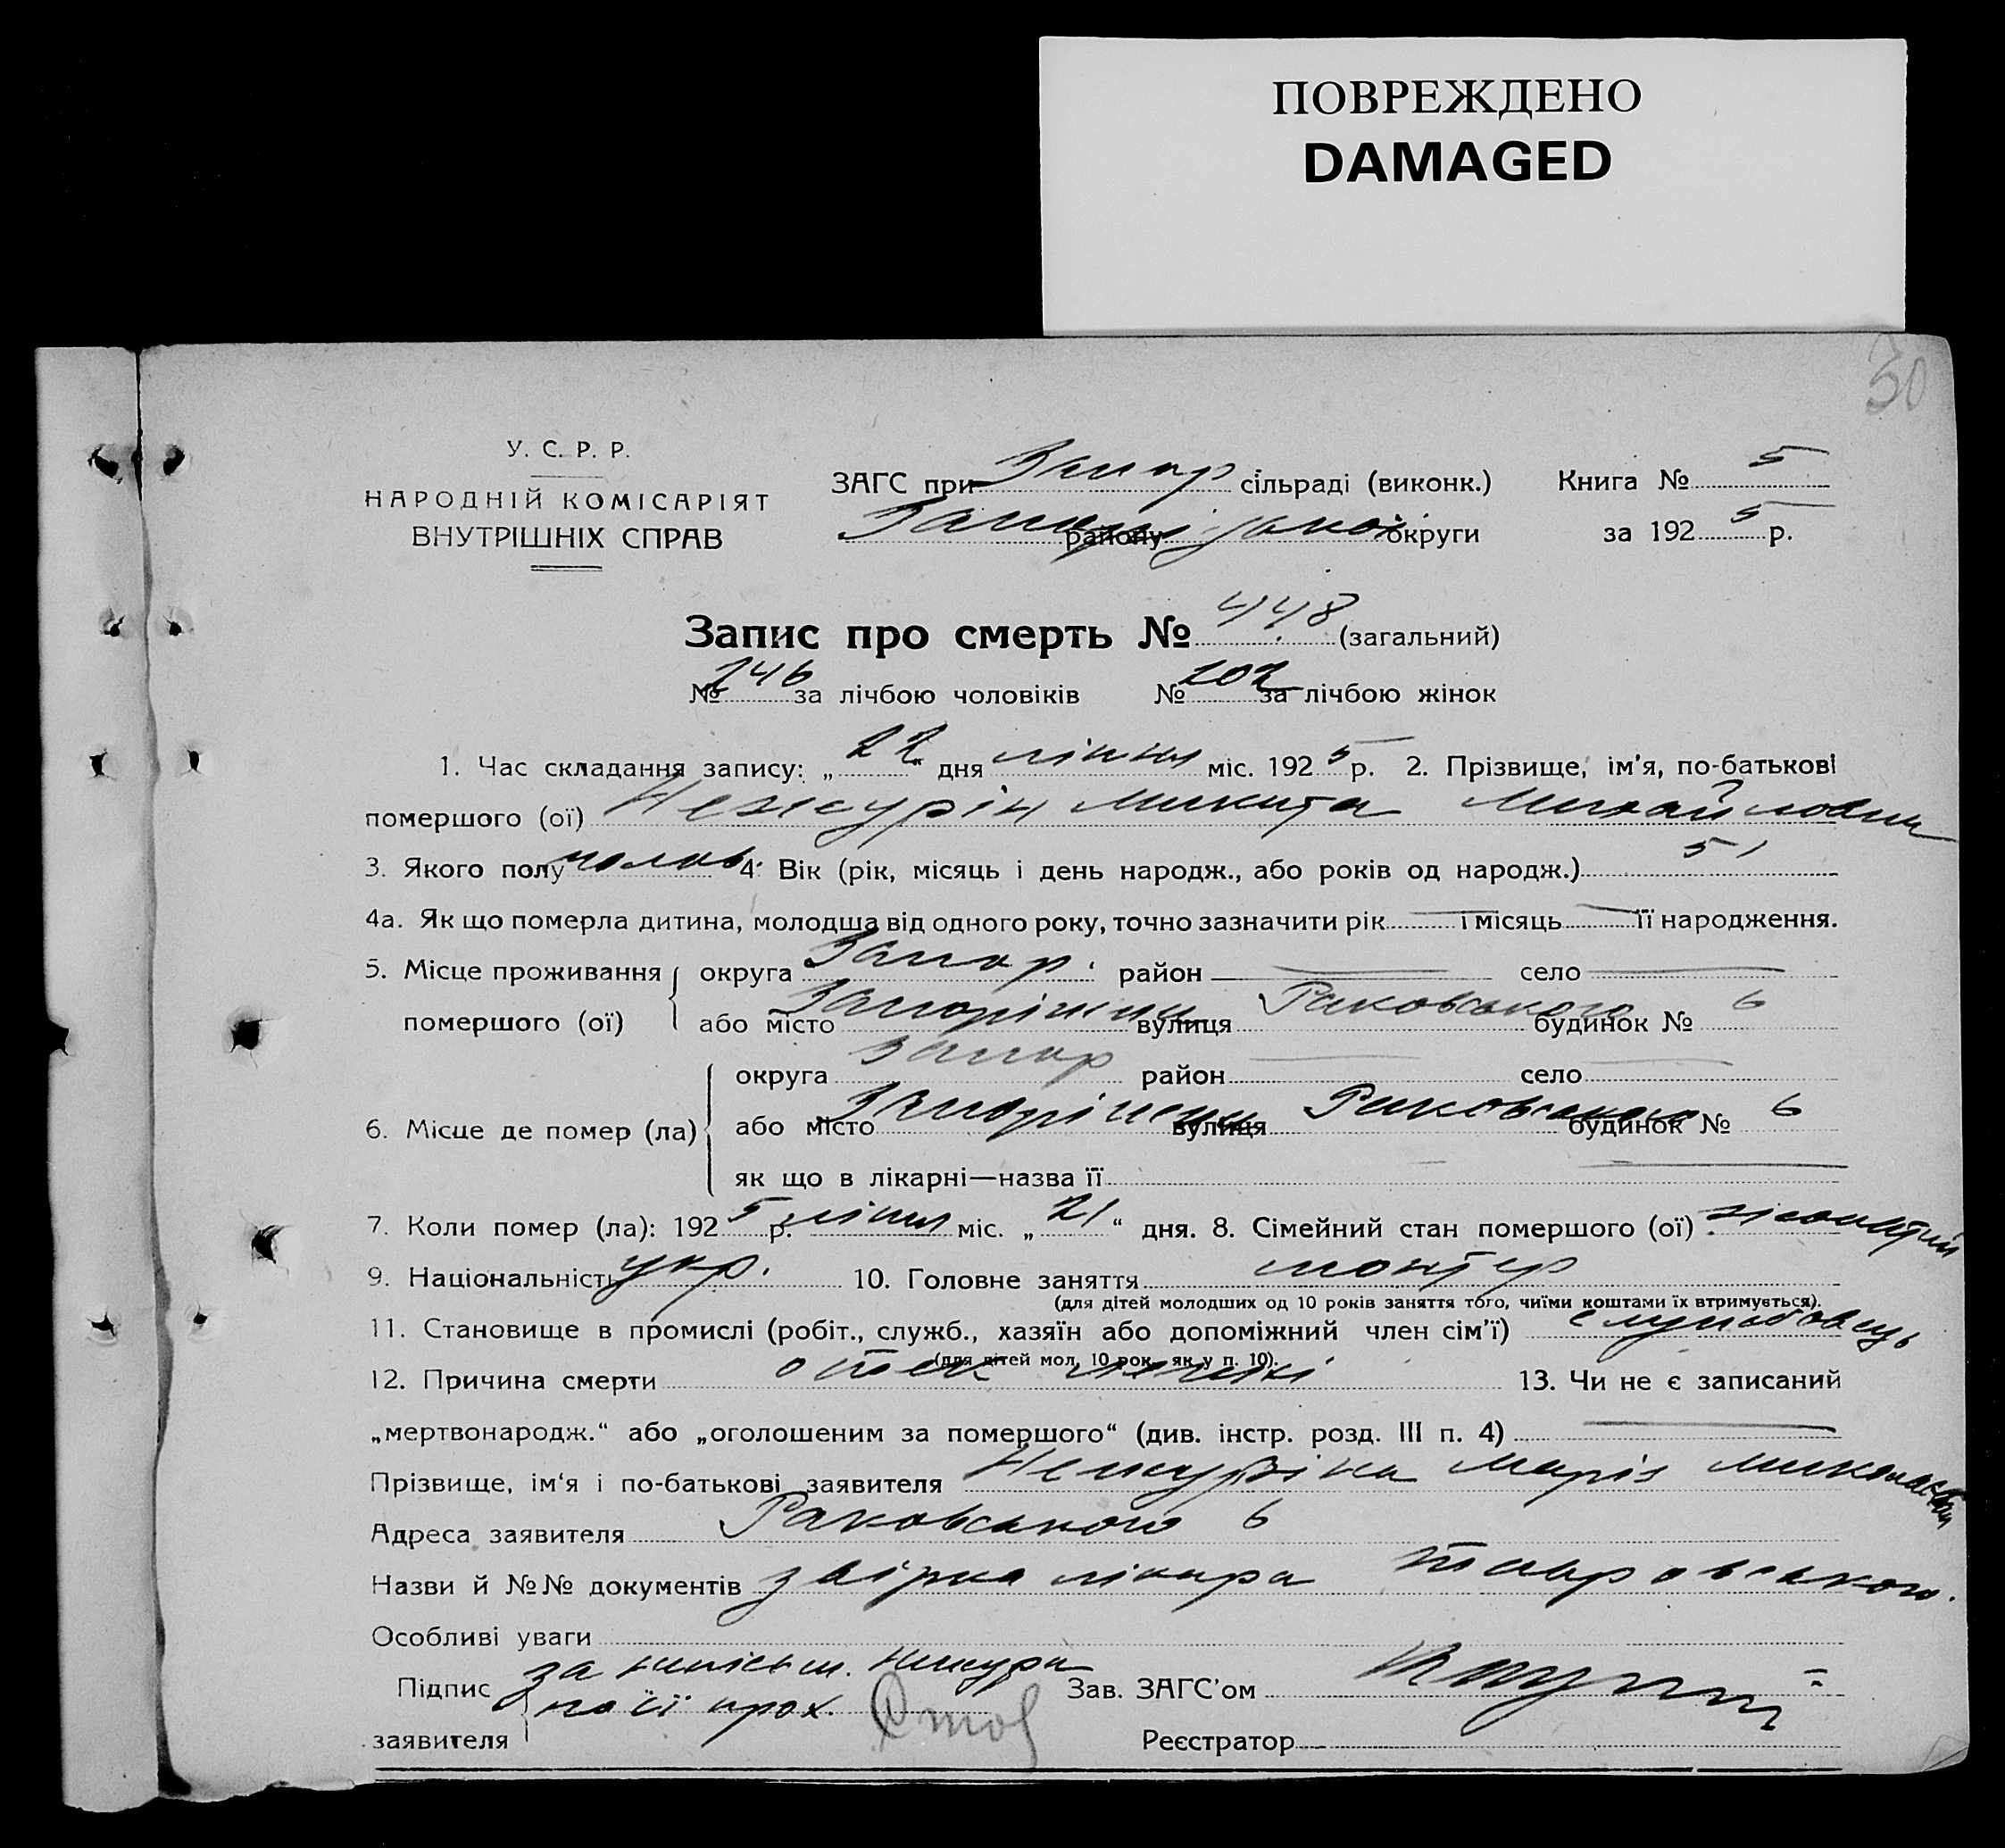 ПОВРЕЖДЕНО
DAMAGED
30
У. С. Р. Р.
НАРОДНІЙ КОМІСАРІЯТ
ВНУТРІШНІХ СПРАВ
ЗАГС при Запор сільраді (виконк.) Книга № 5
району округи за 192 5 р.
Запис про смерть № 448 (загальний)
№ 246 за лічбою чоловіків № 202 за лічбою жінок
1. Час складання запису: „ 22 “ дня липня міс. 192 5 р. 2. Прізвище, ім'я, по-батькові
помершого (ої) Нежурін Микита Михайлович
3. Якого полу чолов 4. Вік (рік, місяць і день народж., або років од народж.) 51
4а. Як що померла дитина, молодша від одного року, точно зазначити рік — і місяць — її народження.
5. Місце проживання округа Запор. район — село —
помершого (ої) або місто Запоріжжя вулиця Раковського будинок № 6
округа Запор район — село —
6. Місце де помер (ла) або місто Запоріжжя вулиця Раковського будинок № 6
як що в лікарні—назва її —
7. Коли помер (ла): 192 5 р. липня міс. „ 21 “ дня. 8. Сімейний стан помершого (ої)
9. Національність укр. 10. Головне заняття монтер
(для дітей молодших од 10 років заняття того, чиїми коштами їх втримується).
11. Становище в промислі (робіт., служб., хазяїн або допоміжний член сім'ї) службовець
(для дітей мол. 10 рок. як у п. 10).
12. Причина смерти отек легені 13. Чи не є записаний
„мертвонародж.“ або „оголошеним за помершого“ (див. інстр. розд. III п. 4) —
Прізвище, ім'я і по-батькові заявителя Нежуріна Марія
Адреса заявителя Раковського 6
Назви й №№ документів довірка лікара
Особливі уваги
Підпис за Нежура Зав. ЗАГС'ом
по її прох.
заявителя Реєстратор